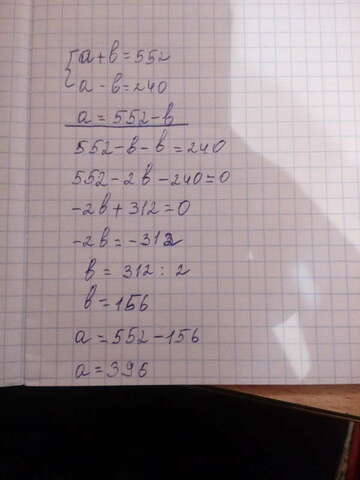 {a+b=552
a-b=240
a=552-b
552-b-b=240
552-2b-240=0
-2b+312=0
-2b=-312
b=312:2
b=156
a=552-156
a=396